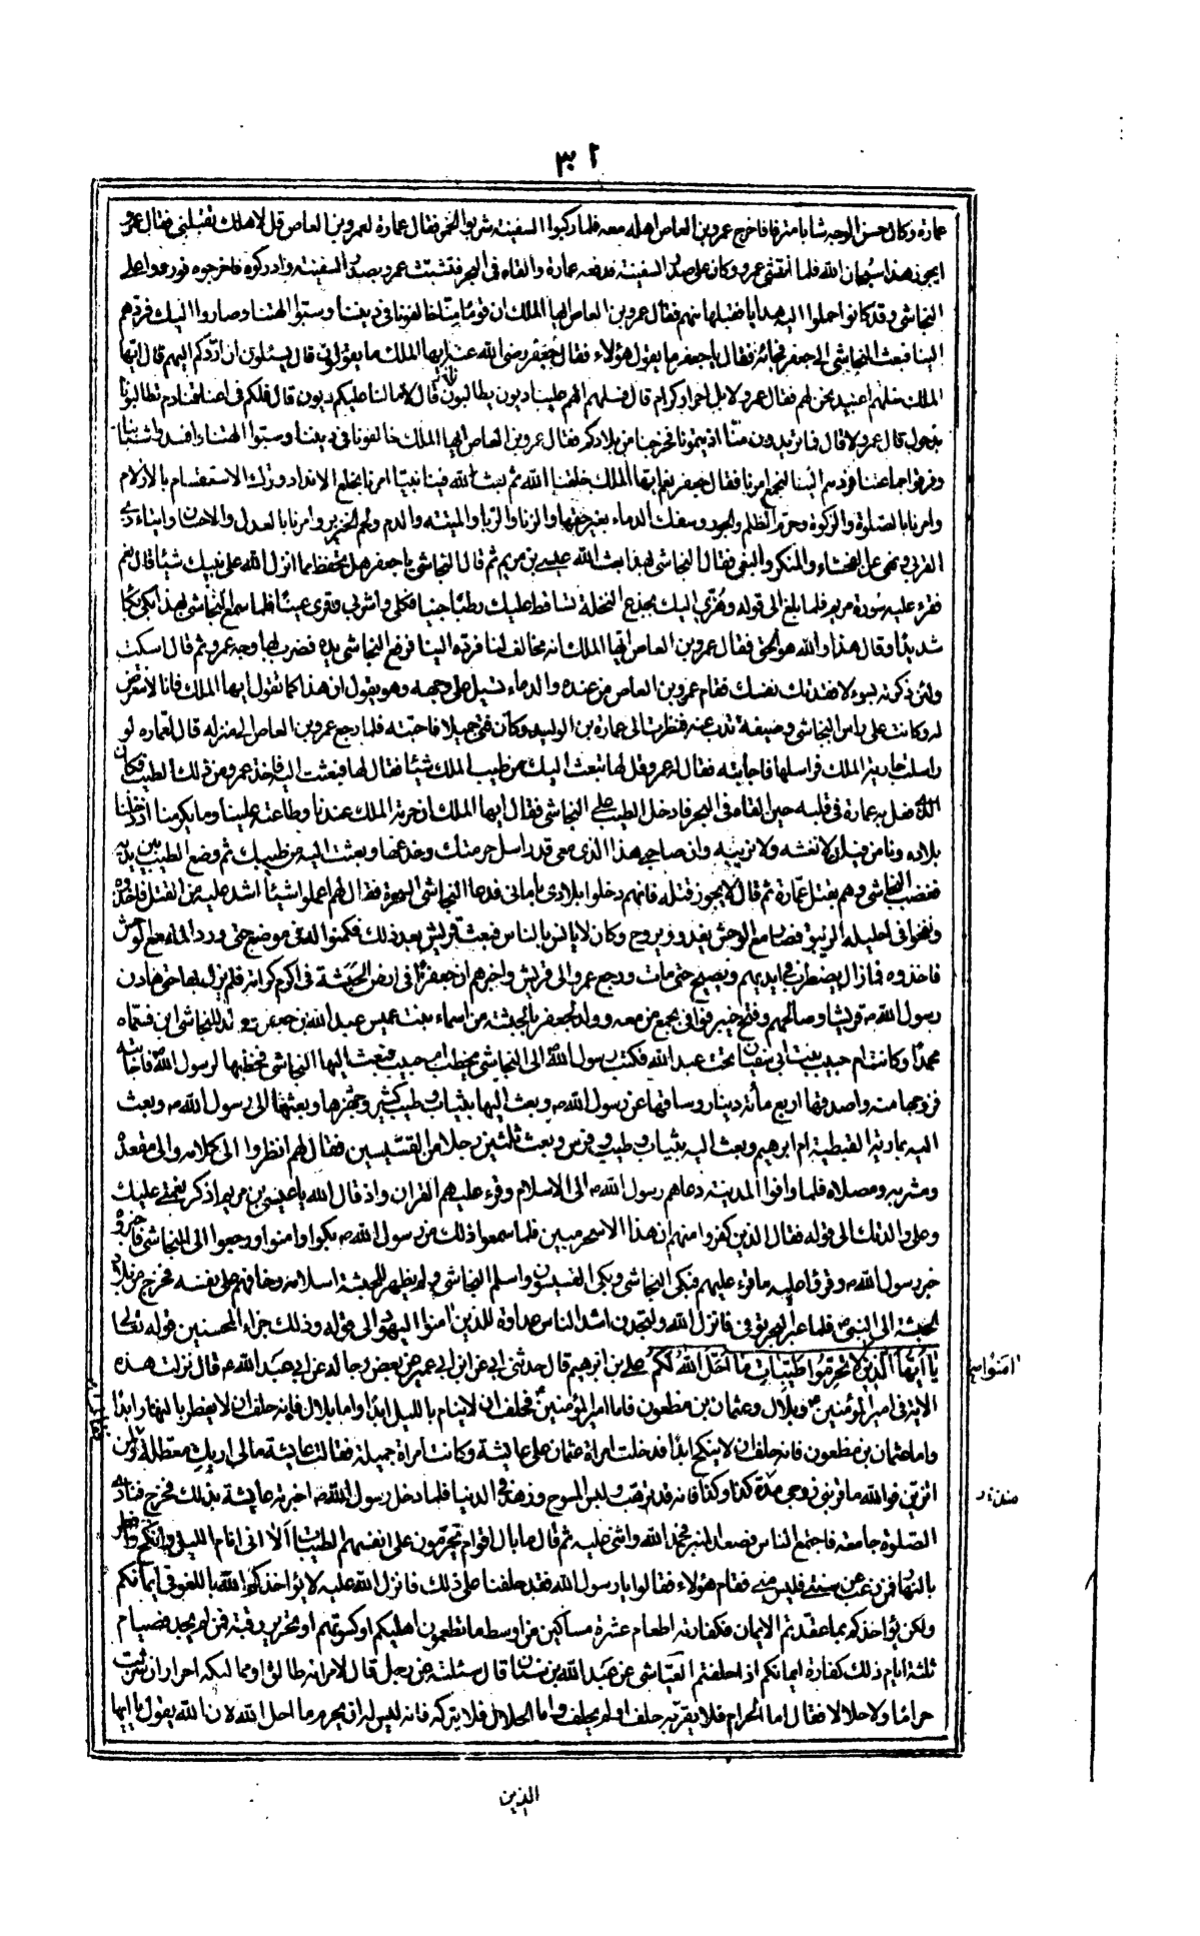 ٣٠٢
عمارة وكان حسن الوجه شابا مترفا فاخرج عمرو بن العاص اهله معه فلما ركبوا السفينة شربوا الخمر فقال عمارة لعمرو بن العاص قل لاهلك تقبلنى فقال عمرو
ايجوز هذا سبحان الله فلما انتشى عمرو وكان على صدر السفينة فدفعه عمارة والقاه فى البحر فتشبث عمرو بصدر السفينة وادركوه فاخرجوه فوردوا على
النجاشى وقد كانوا حملوا اليه هدايا فقبلها منهم فقال عمرو بن العاص ايها الملك ان قوما منا خالفونا فى ديننا وسبوا الهتنا وصاروا اليك فردهم
الينا فبعث النجاشى الى جعفر فجائه فقال يا جعفر ما يقول هؤلاء فقال جعفر رضى الله عنه ايها الملك ما يقولون قال يسئلون ان اردكم اليهم قال ايها
الملك سلهم اعبيد نحن لهم فقال عمرو لا بل احرار كرام قال فسلهم الهم علينا ديون يطالبوننا قال لا ما لنا عليكم ديون قال فلكم فى اعناقنا دم تطالبونا
بذحول قال عمرو لا قال فما تريدون منا اذيتمونا فخرجنا من بلادكم فقال عمرو بن العاص ايها الملك خالفونا فى ديننا وسبوا الهتنا وافسدوا شبابنا
وفرقوا جماعتنا فردهم الينا لنجمع امرنا فقال جعفر نعم ايها الملك خلقنا الله ثم بعث الله فينا نبيا امرنا بخلع الانداد وترك الاستقسام بالازلام
وامرنا بالصلوة والزكوة وحرم الظلم والجور وسفك الدماء بغير حقها والزنا والربا والميتة والدم ولحم الخنزير وامرنا بالعدل والاحسان وايتاء ذى
القربى ونهى عن الفحشاء والمنكر والبغى فقال النجاشى بهذا بعث الله عيسى بن مريم ثم قال النجاشى يا جعفر هل تحفظ مما انزل الله على نبيك شيئا قال نعم
فقرء عليه سورة مريم فلما بلغ الى قوله وهزى اليك بجذع النخلة تساقط عليك رطبا جنيا فكلى واشربى وقرى عينا فلما سمع النجاشى بهذا بكى بكاء
شديدا وقال هذا والله هو الحق فقال عمرو بن العاص ايها الملك انه مخالف لنا فرده الينا فرفع النجاشى يده فضرب بها وجه عمرو ثم قال اسكت
ولئن ذكرته بسوء لافقدتك نفسك فقام عمرو بن العاص من عنده والدماء تسيل على وجهه وهو يقول ان هذا كما تقول ايها الملك فانا لا نتعرض
له وكانت على راس النجاشى وصيفة تذب عنه فنظرت الى عمارة بن الوليد وكان فتى جميلا فاحبته فلما رجع عمرو بن العاص الى منزله قال لعماره لو
راسلت جارية الملك فراسلها فاجابته فقال له عمرو قل لها تبعث اليك من طيب الملك شيئا فقال لها فبعثت اليه فاخذ عمرو من ذلك الطيب وكان
الذى فعل به عمارة فى قلبه حين القاه فى البحر فادخل الطيب على النجاشى فقال ايها الملك ان حرمة الملك عندنا وطاعته علينا وما يكرمنا اذ دخلنا
بلاده ونامن فيه ان لا نغشه ولا نريبه وان صاحبى هذا الذى معى قد راسل حرمتك وخدعها وبعثت اليه من طيبك ثم وضع الطيب بين يديه
فغضب النجاشى وهم بقتل عمارة ثم قال لا يجوز قتله فانهم دخلوا بلادى بامانى فدعا النجاشى السحرة فقال لهم اعملوا شيئا اشد عليه من القتل فاخذوه
ونفخوا فى احليله الزئبق فصار مع الوحش يغدو ويروح وكان لا يانس بالناس فبعثت قريش بعد ذلك فكمنوا له فى موضع حتى ورد الماء مع الوحش
فاخذوه فما زال يضطرب فى ايديهم ويصيح حتى مات ورجع عمرو الى قريش واخبرهم ان جعفرا فى ارض الحبشة فى اكرم كرامة فلم يزل بها حتى هادن
رسول الله ص قريشا وصالحهم وفتح خيبر فوافى بجميع من معه وولد لجعفر بالحبشة من اسماء بنت عميس عبد الله بن جعفر وولد للنجاشى ابن فسماه
محمدا وكانت ام حبيب بنت ابى سفيان تحت عبد الله فكتب رسول الله الى النجاشى يخطب ام حبيب فبعث اليها النجاشى فخطبها لرسول الله ص فاجابته
فزوجها منه واصدقها اربع مأتة دينار وساقها عن رسول الله ص وبعث اليها بثياب وطيب كثير وجهزها وبعثها الى رسول الله ص وبعث
اليه بمارية القبطية ام ابرهيم وبعث اليه بثياب وطيب وفرس وبعث ثلثين رجلا من القسيسين فقال لهم انظروا الى كلامه والى مقعده
ومشربه ومصلاه فلما وافوا المدينة دعاهم رسول الله ص الى الاسلام وقرء عليهم القران واذ قال الله يا عيسى بن مريم اذكر نعمتى عليك
وعلى والدتك الى قوله فقال الذين كفروا منهم ان هذا الا سحر مبين فلما سمعوا ذلك من رسول الله ص بكوا وامنوا ورجعوا الى النجاشى فاخبروه
خبر رسول الله ص وقرؤا عليه ما قرء عليهم فبكى النجاشى وبكى القسيسون واسلم النجاشى ولم يظهر للحبشة اسلامه وخافهم على نفسه فخرج من بلاد
الحبشة الى النبى ص فلما عبر البحر توفى فانزل الله ولتجدن اشد الناس عداوة للذين امنوا اليهود الى قوله وذلك جزاء المحسنين قوله تعالى
يا ايها الذين لا تحرموا طيبات ما احل الله لكم على بن ابرهيم قال حدثنى ابى عن ابن ابى عمير عن بعض رجاله عن ابى عبد الله ع قال نزلت هذه
امنوا
الاية فى امير المؤمنين ع وبلال وعثمان بن مظعون فاما امير المؤمنين ع فحلف ان لا ينام بالليل ابدا واما بلال فانه حلف ان لا يفطر بالنهار ابدا
واما عثمان بن مظعون فانه حلف ان لا ينكح ابدا فدخلت امراة عثمان على عايشة وكانت امراة جميلة فقالت عايشة مالى اريك معطلة فقالت ولمن
اتزين فوالله ما قربنى زوجى مدة كذا وكذا فانه قد ترهب ولبس المسوح وزهد فى الدنيا فلما دخل رسول الله ص اخبرته عايشة بذلك فخرج فنادى
منذ
الصلوة جامعة فاجتمع الناس فصعد المنبر فحمد الله واثنى عليه ثم قال ما بال اقوام يحرمون على انفسهم الطيبات الا انى انام الليل وانكح وافطر
بالنهار فمن رغب عن سنتى فليس منى فقام هؤلاء فقالوا يا رسول الله فقد حلفنا على ذلك فانزل الله عليه لا يؤاخذكم الله باللغو فى ايمانكم
ولكن يؤاخذكم بما عقدتم الايمان فكفارته اطعام عشرة مساكين من اوسط ما تطعمون اهليكم او كسوتهم او تحرير رقبة فمن لم يجد فصيام
ثلثة ايام ذلك كفارة ايمانكم اذا حلفتم العياشى عن عبد الله بن سنان قال سئلته عن رجل قال لامراته طالق او مماليكه احرار ان شربت
حراما ولا حلالا فقال اما الحرام فلا يقربه حلف او لم يحلف واما الحلال فلا يتركه فانه ليس له ان يحرم ما احل الله لان الله يقول يا ايها
الذين